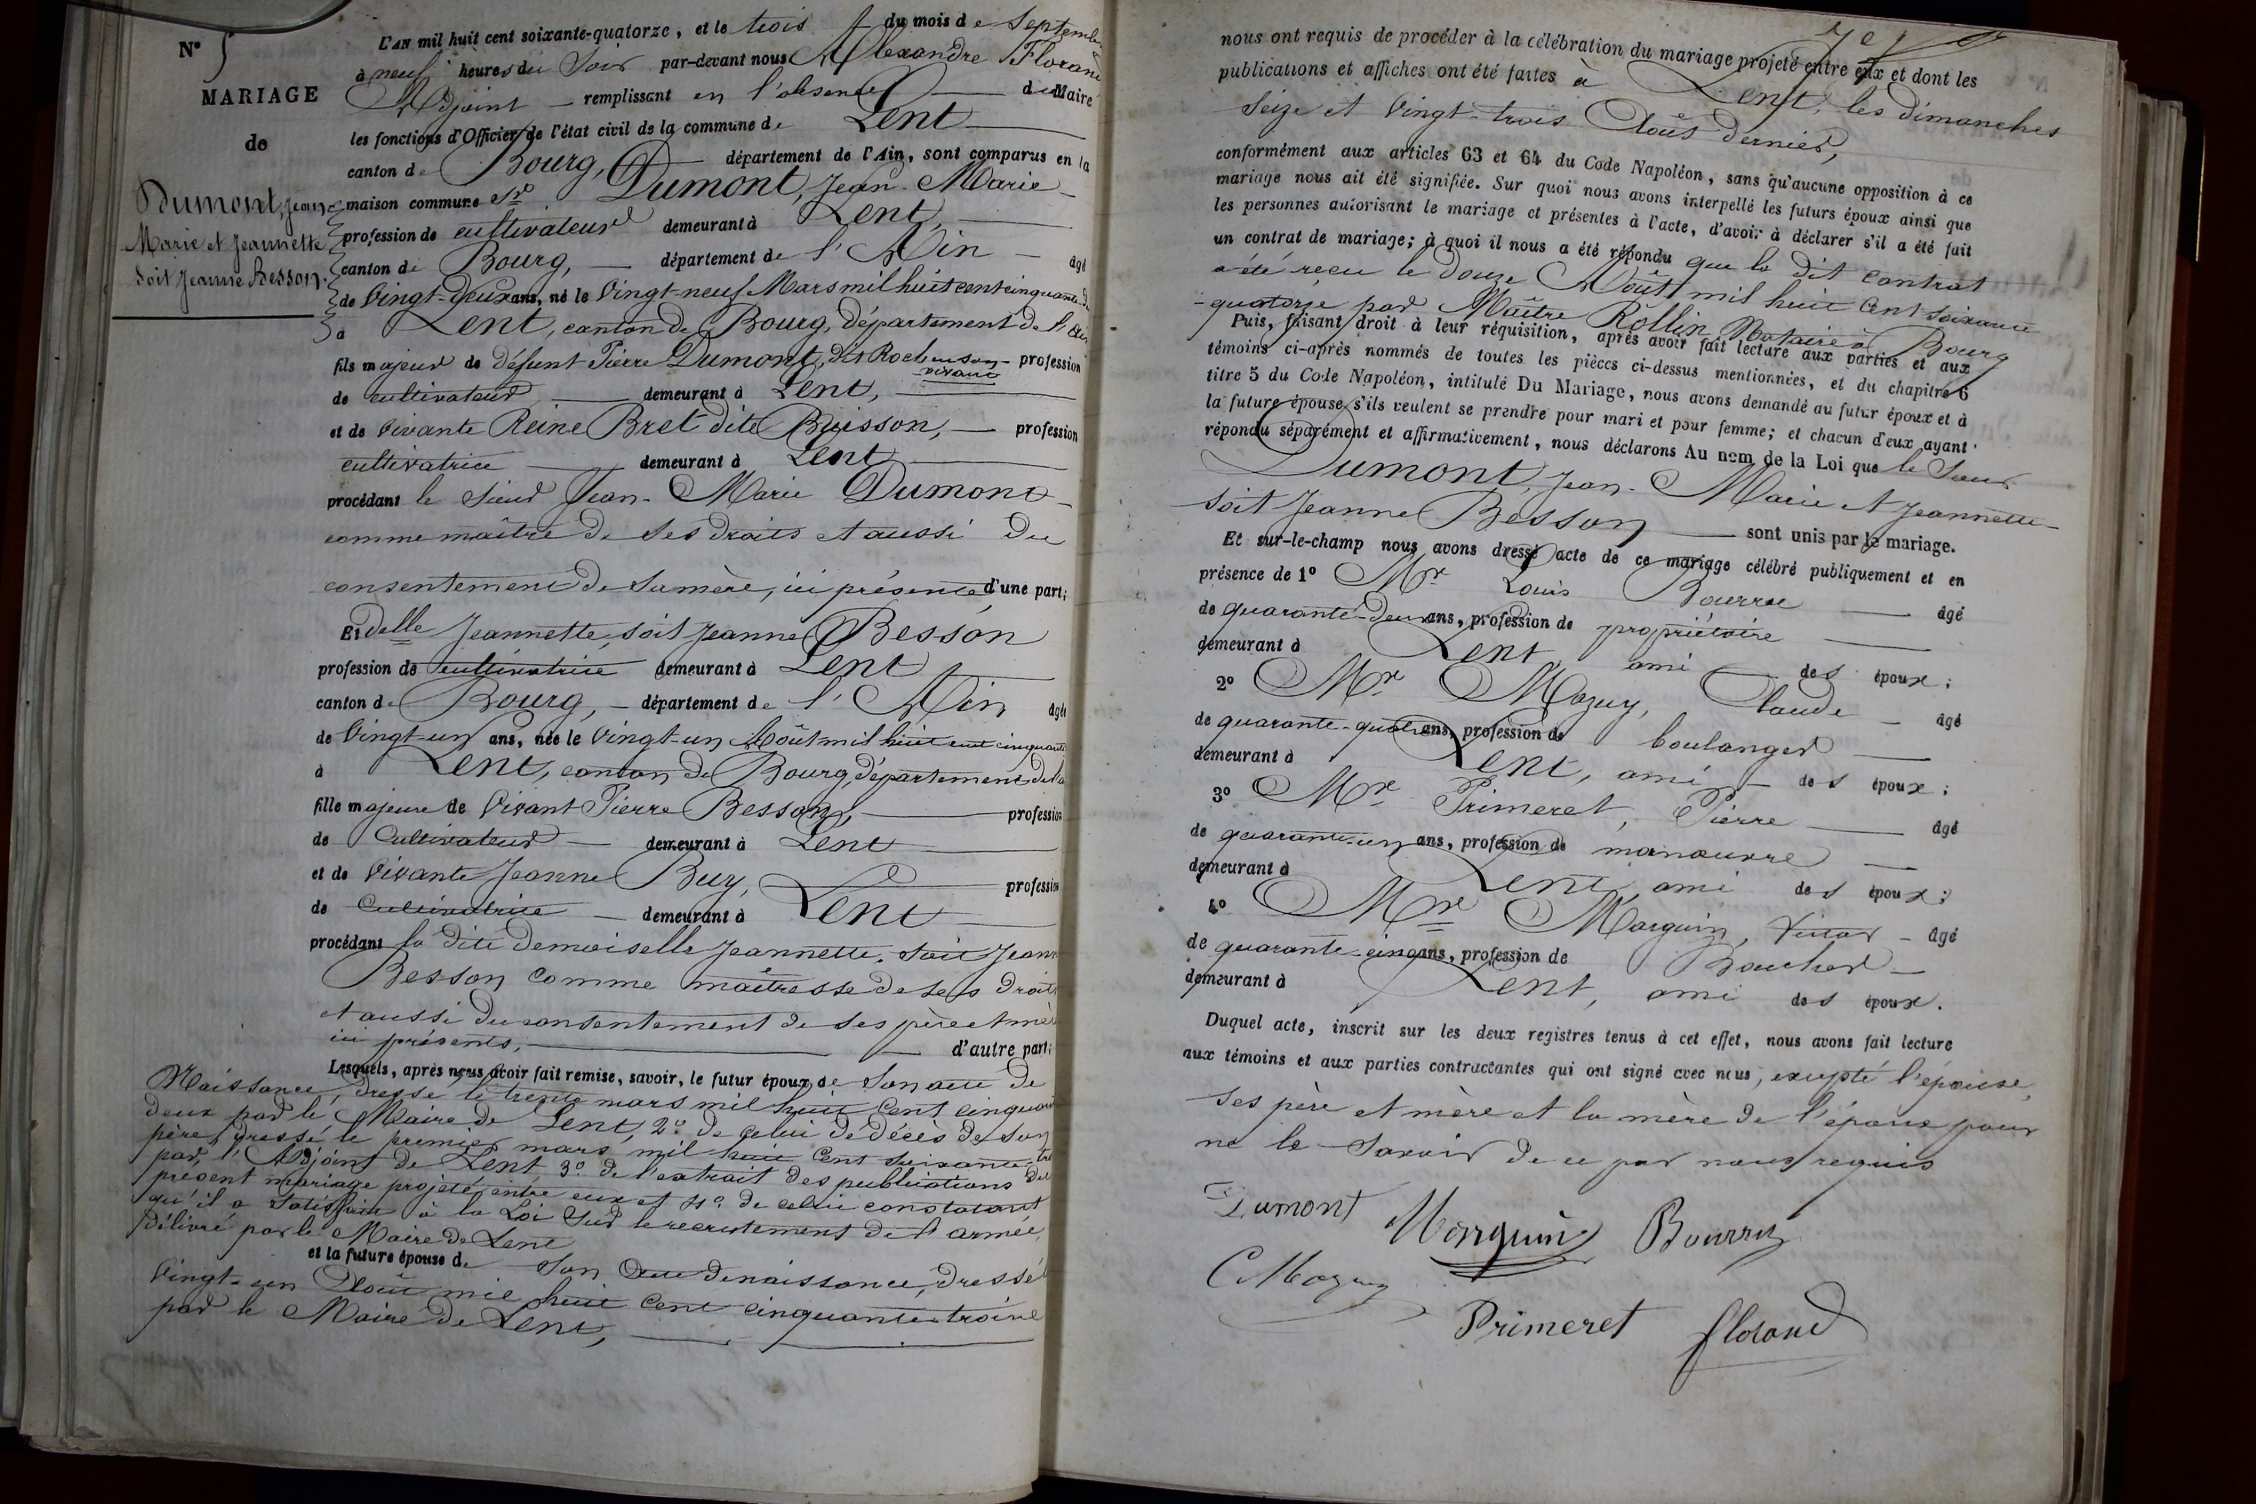 N° 5
MARIAGE
de
Dumont, Jean-
Marie et Jeannette
soit Jeanne Besson.
L'AN mil huit cent soixante-quatorze, et le trois du mois de Septembre
à neuf heures du Soir par-devant nous Alexandre Florand
Adjoint remplissant en l'absence du Maire
les fonctions d'Officier de l'état civil de la commune de Lent
canton de Bourg, département de l'Ain, sont comparus en la
maison commune Sr Dumont, Jean-Marie
profession de cultivateur demeurant à Lent,
canton de Bourg, département de l'Ain âgé
de Vingt-deux ans, né le Vingt-neuf Mars mil huit cent cinquante-de
à Lent, canton de Bourg, département de l'Ain
fils majeur de défunt Pierre Dumont, dit Roch en son vivant profession
de cultivateur demeurant à Lent,
et de Vivante Reine Bret dite Buisson, profession
cultivatrice demeurant à Lent
procédant le sieur Jean-Marie Dumont
comme maître de ses droits et aussi du
consentement de sa mère, ici présente, d'une part;
Et delle Jeannette, soit Jeanne Besson
profession de cultivatrice demeurant à Lent
canton de Bourg, département de l'Ain âgée
de Vingt-un ans, née le Vingt-un Août mil huit cent cinquante
à Lent, canton de Bourg, département de l'a
fille majeure de Vivant Pierre Besson, profession
de Cultivateur demeurant à Lent
et de Vivante Jeanne Buy, profession
de Cultivatrice demeurant à Lent
procédant la dite demoiselle Jeannette, soit Jeanne
Besson comme maîtresse de ses droits
et aussi du consentement de ses père et mère
ici présents, d'autre part;
Lesquels, après nous avoir fait remise, savoir, le futur époux de son acte de
Naissance, dressé le trente mars mil huit cent cinquante
deux par le Maire de Lent, 2° de celui de décès de son
père, dressé le premier mars mil huit cent soixante-tre
par l'Adjoint de Lent, 3° de l'extrait des publications du
présent mariage projeté entre eux et 4° de celui constatant
qu'il a satisfait à la Loi sur le recrutement de l'armée,
délivré par le Maire de Lent
et la future épouse de son acte de naissance, dressé
Vingt-un Août mil huit cent cinquante-trois
par le Maire de Lent,
7e
nous ont requis de procéder à la célébration du mariage projeté entre eux et dont les
publications et affiches ont été faites à Lent, les dimanches
seize et Vingt-trois Août dernier,
conformément aux articles 63 et 64 du Code Napoléon, sans qu'aucune opposition à ce
mariage nous ait été signifiée. Sur quoi nous avons interpellé les futurs époux ainsi que
les personnes autorisant le mariage et présentes à l'acte, d'avoir à déclarer s'il a été fait
un contrat de mariage; à quoi il nous a été répondu que le dit contrat
a été reçu le douze Août mil huit cent soixante
-quatorze par Maître Rollin Notaire à Bourg
Puis, faisant droit à leur réquisition, après avoir fait lecture aux parties et aux
témoins ci-après nommés de toutes les pièces ci-dessus mentionnées, et du chapitre 6
titre 5 du Code Napoléon, intitulé Du Mariage, nous avons demandé au futur époux et à
la future épouse s'ils veulent se prendre pour mari et pour femme; et chacun d'eux ayant
répondu séparément et affirmativement, nous déclarons Au nom de la Loi que le Sieur
Dumont, Jean-Marie et Jeannette
soit Jeanne Besson sont unis par le mariage.
Et sur-le-champ nous avons dressé acte de ce mariage célébré publiquement et en
présence de 1° Mr Louis Bourrue âgé
de quarante-deux ans, profession de propriétaire
demeurant à Lent ami des époux;
2° Mr Mazuy, Claude âgé
de quarante-quatre ans, profession de boulanger
demeurant à Lent, ami des époux;
3° Mr Primeret, Pierre âgé
de quarante-un ans, profession de manœuvre
demeurant à Lent, ami des époux;
4° Mr Marguin, âgé
de quarante-cinq ans, profession de Boucher
demeurant à Lent, ami des époux.
Duquel acte, inscrit sur les deux registres tenus à cet effet, nous avons fait lecture
aux témoins et aux parties contractantes qui ont signé avec nous, excepté l'épouse,
ses père et mère et la mère de l'époux pour
ne le savoir de ce par nous requis
Dumont Marguin Bourru
C Mazuy
Primeret Florand